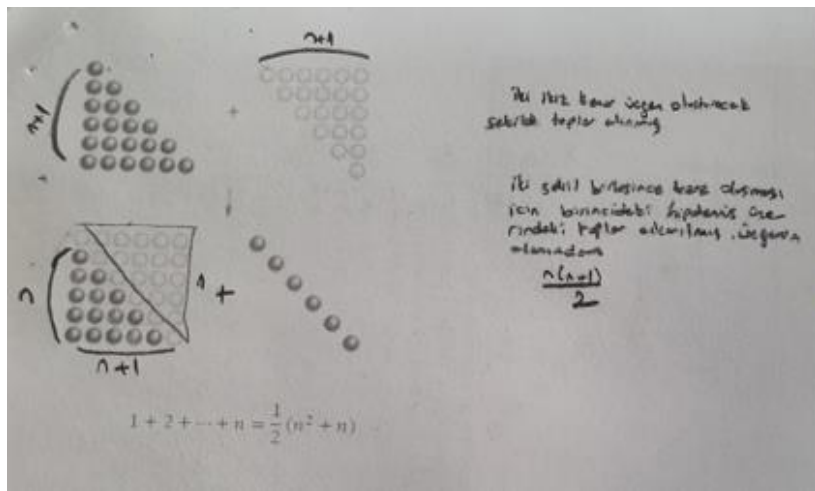 n+1
n+1
+
iki ikiz kenar üçgen oluşturacak
şekilde toplar alınmış
iki şekil birleşince kare oluşması
için birincideki hipotenüs üze
rindeki toplar çıkarılmış, üçgenin
n(n+1)
2
n
n
+
n+1
1 + 2 + ··· + n = 1/2 (n² + n)